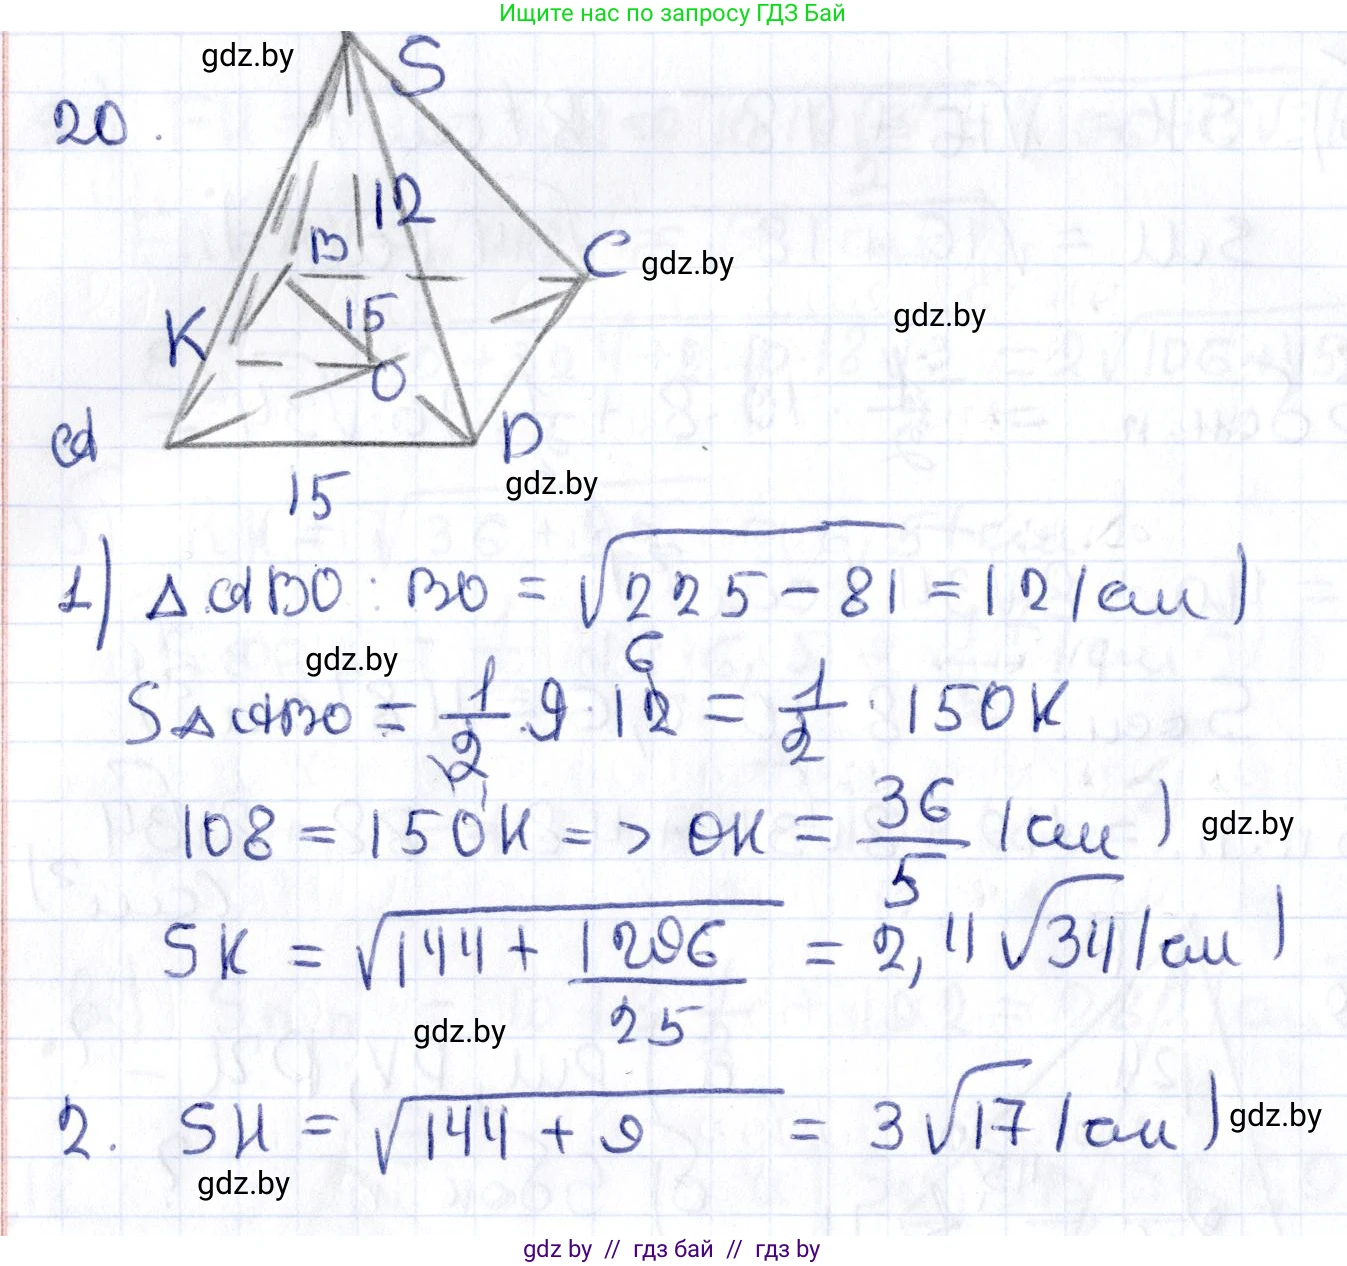 Ищите нас по запросу ГДЗ Бай
gdz.by
S
20.
12
B
C
gdz.by
K
15
gdz.by
O
A
D
15
gdz.by
1) Δ ABO : BO = √225 - 81 = 12 (см)
gdz.by
S Δ ABO = 1/2 · 9 · 12 6 = 1/2 · 15 OK
108 = 15 OK => OK = 36/5 (см)
gdz.by
SK = √144 + 1296/25 = 2,4 √34 (см)
gdz.by
2. SH = √144 + 9 = 3 √17 (см)
gdz.by
gdz.by
gdz by // гдз бай // гдз by